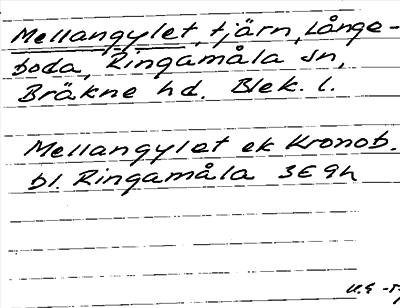 Mellangylet, tjärn, Långe-
boda, Ringamåla sn,
Bräkne hd. Blek. l.
Mellangylet ek Kronob.
bl. Ringamåla 3E9h